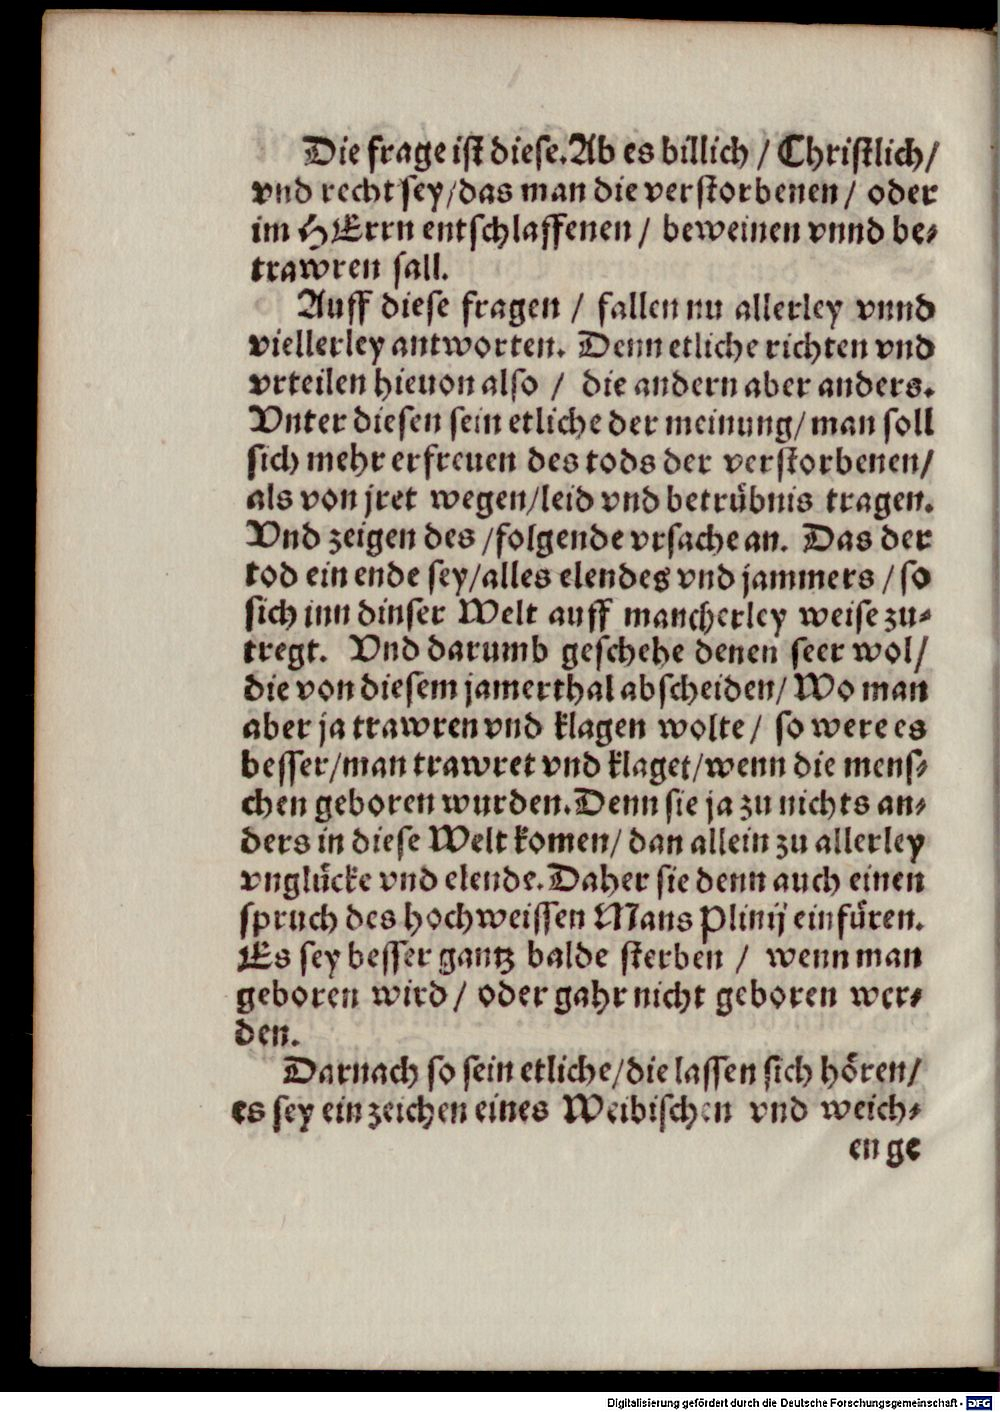 Die frage ist diese. Ab es billich / Christlich /
vnd recht sey / das man die verstorbenen / oder
im HErrn entschlaffenen / beweinen vnnd be-
trawren sall.
Auff diese fragen / fallen nu allerley vnnd
viellerley antworten. Denn etliche richten vnd
vrteilen hieuon also / die andern aber anders.
Vnter diesen sein etliche der meinung / man soll
sich mehr erfreuen des tods der verstorbenen /
als von jret wegen / leid vnd betrübnis tragen.
Vnd zeigen des / folgende vrsache an. Das der
tod ein ende sey / alles elendes vnd jammers / so
sich inn dinser Welt auff mancherley weise zu-
tregt. Vnd darumb geschehe denen seer wol /
die von diesem jamerthal abscheiden / Wo man
aber ja trawren vnd klagen wolte / so were es
besser / man trawret vnd klaget / wenn die mens-
chen geboren wurden. Denn sie ja zu nichts an-
ders in diese Welt komen / dan allein zu allerley
vnglücke vnd elende. Daher sie denn auch einen
spruch des hochweissen Mans Plinij einfüren.
Es sey besser gantz balde sterben / wenn man
geboren wird / oder gahr nicht geboren wer-
den.
Darnach so sein etliche / die lassen sich hören /
es sey ein zeichen eines Weibischen vnd weich-
en ge
Digitalisierung gefördert durch die Deutsche Forschungsgemeinschaft - DFG